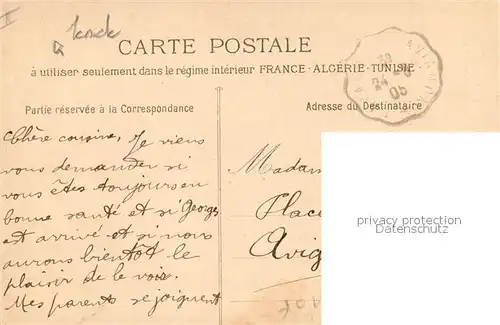 CARTE POSTALE
à utiliser seulement dans le régime intérieur FRANCE - ALGÉRIE - TUNISIE
Partie réservée à la Correspondance
Adresse du Destinataire
Chère cousine, Je viens
vous demander si
vous êtes toujours en
bonne santé et si Georges
est arrivé et si nous
aurons bientôt le
plaisir de le voir.
Mes parents se joignent
Madam
Place
Avig
privacy protection
Datenschutz